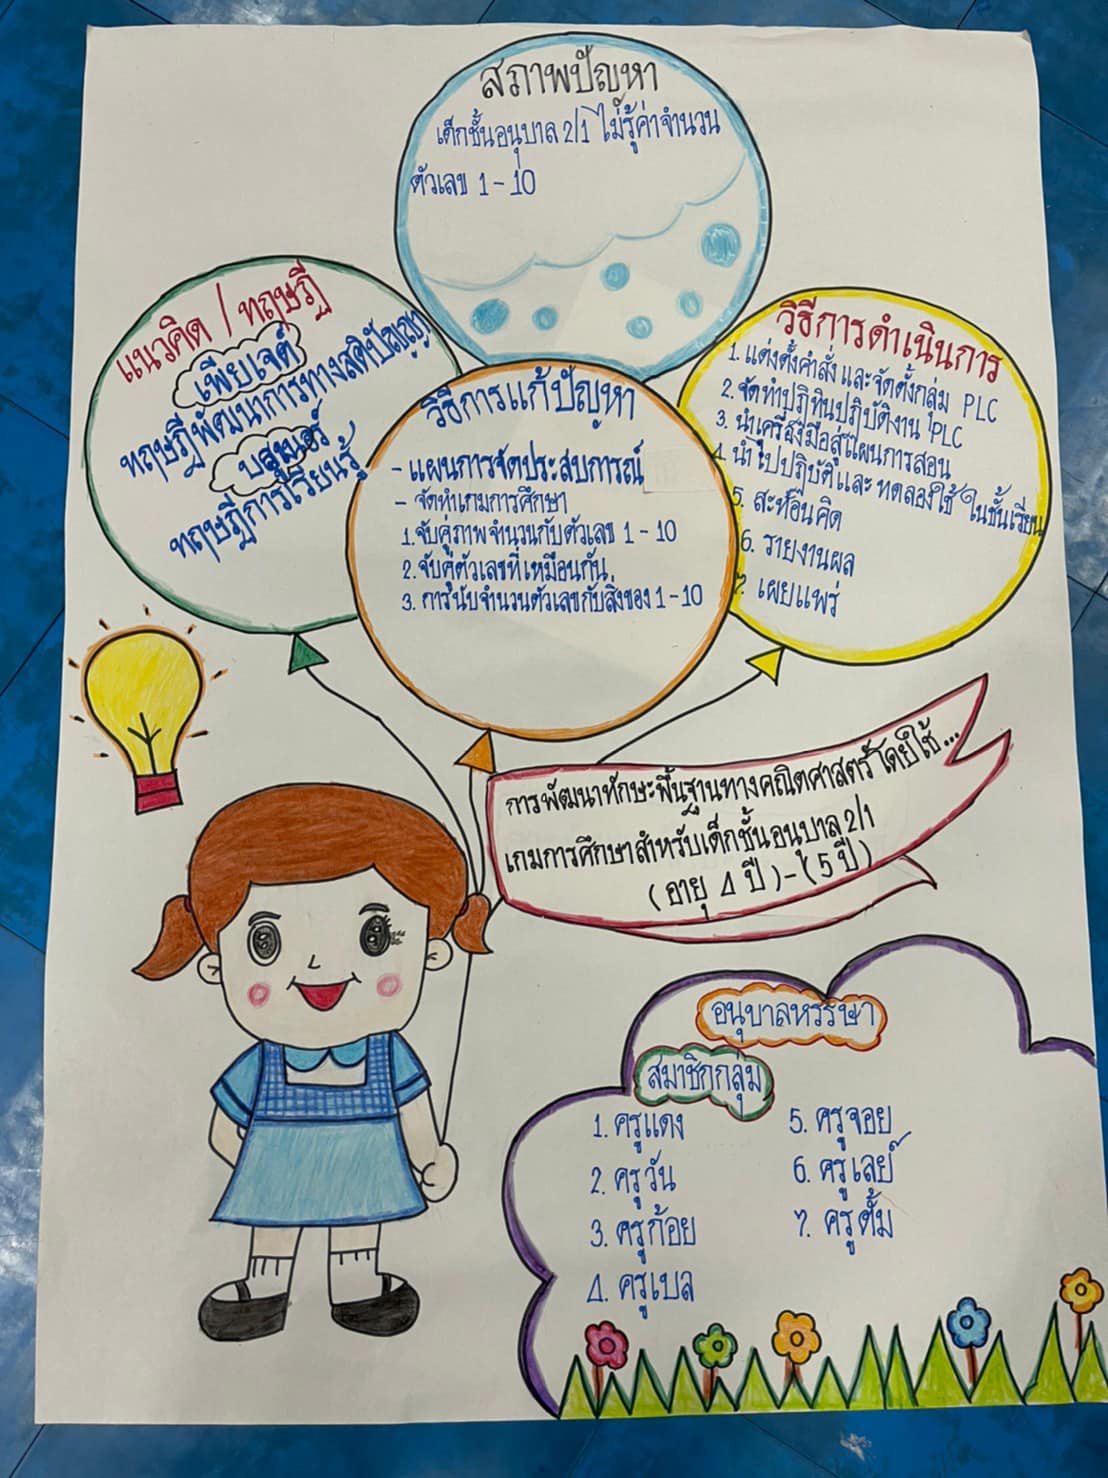 สภาพปัญหา
เด็กชั้นอนุบาล 2/1 ไม่รู้ค่าจำนวน
ตัวเลข 1 - 10
แนวคิด / ทฤษฎี
เพียเจต์
ทฤษฎีพัฒนาการทางสติปัญญา
บรูเนอร์
ทฤษฎีการเรียนรู้
วิธีการแก้ปัญหา
- แผนการจัดประสบการณ์
- จัดทำเกมการศึกษา
1. จับคู่ภาพจำนวนกับตัวเลข 1 - 10
2. จับคู่ตัวเลขที่เหมือนกัน
3. การนับจำนวนตัวเลขกับสิ่งของ 1 - 10
วิธีการดำเนินการ
1. แต่งตั้งคำสั่ง และจัดตั้งกลุ่ม PLC
2. จัดทำปฏิทินปฏิบัติงาน PLC
3. นำเครื่องมือสู่แผนการสอน
4. นำไปปฏิบัติและทดลองใช้ในชั้นเรียน
5. สะท้อนคิด
6. รายงานผล
7. เผยแพร่
การพัฒนาทักษะพื้นฐานทางคณิตศาสตร์โดยใช้...
เกมการศึกษาสำหรับเด็กชั้นอนุบาล 2/1
(อายุ 4 ปี) - (5 ปี)
อนุบาลหรรษา
สมาชิกกลุ่ม
1. ครูแดง
2. ครูวัน
3. ครูก้อย
4. ครูเบล
5. ครูจอย
6. ครูเลย์
7. ครูตั้ม